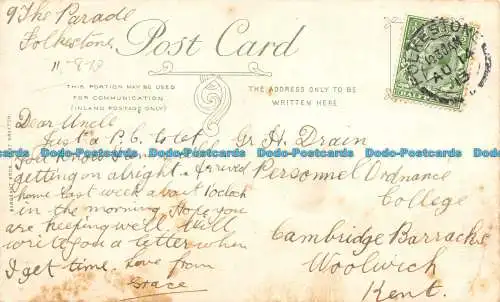 9 The Parade
Folkestone
11-8-13
Post Card
THIS PORTION MAY BE USED
FOR COMMUNICATION
(INLAND POSTAGE ONLY)
THE ADDRESS ONLY TO BE
WRITTEN HERE
FOLKESTONE
Dear Uncle
Just a P.C. to let
getting on alright. Arrived
home last week about 1 o'clock
in the morning. Hope you
are keeping well. Will
write you a letter when
I get time. Love from
Grace
Gr H. Drain
Personnel Ordnance
College
Cambridge Barracks
Woolwich
Kent.
Dodo-Postcards Dodo-Postcards Dodo-Postcards Dodo-Postcards